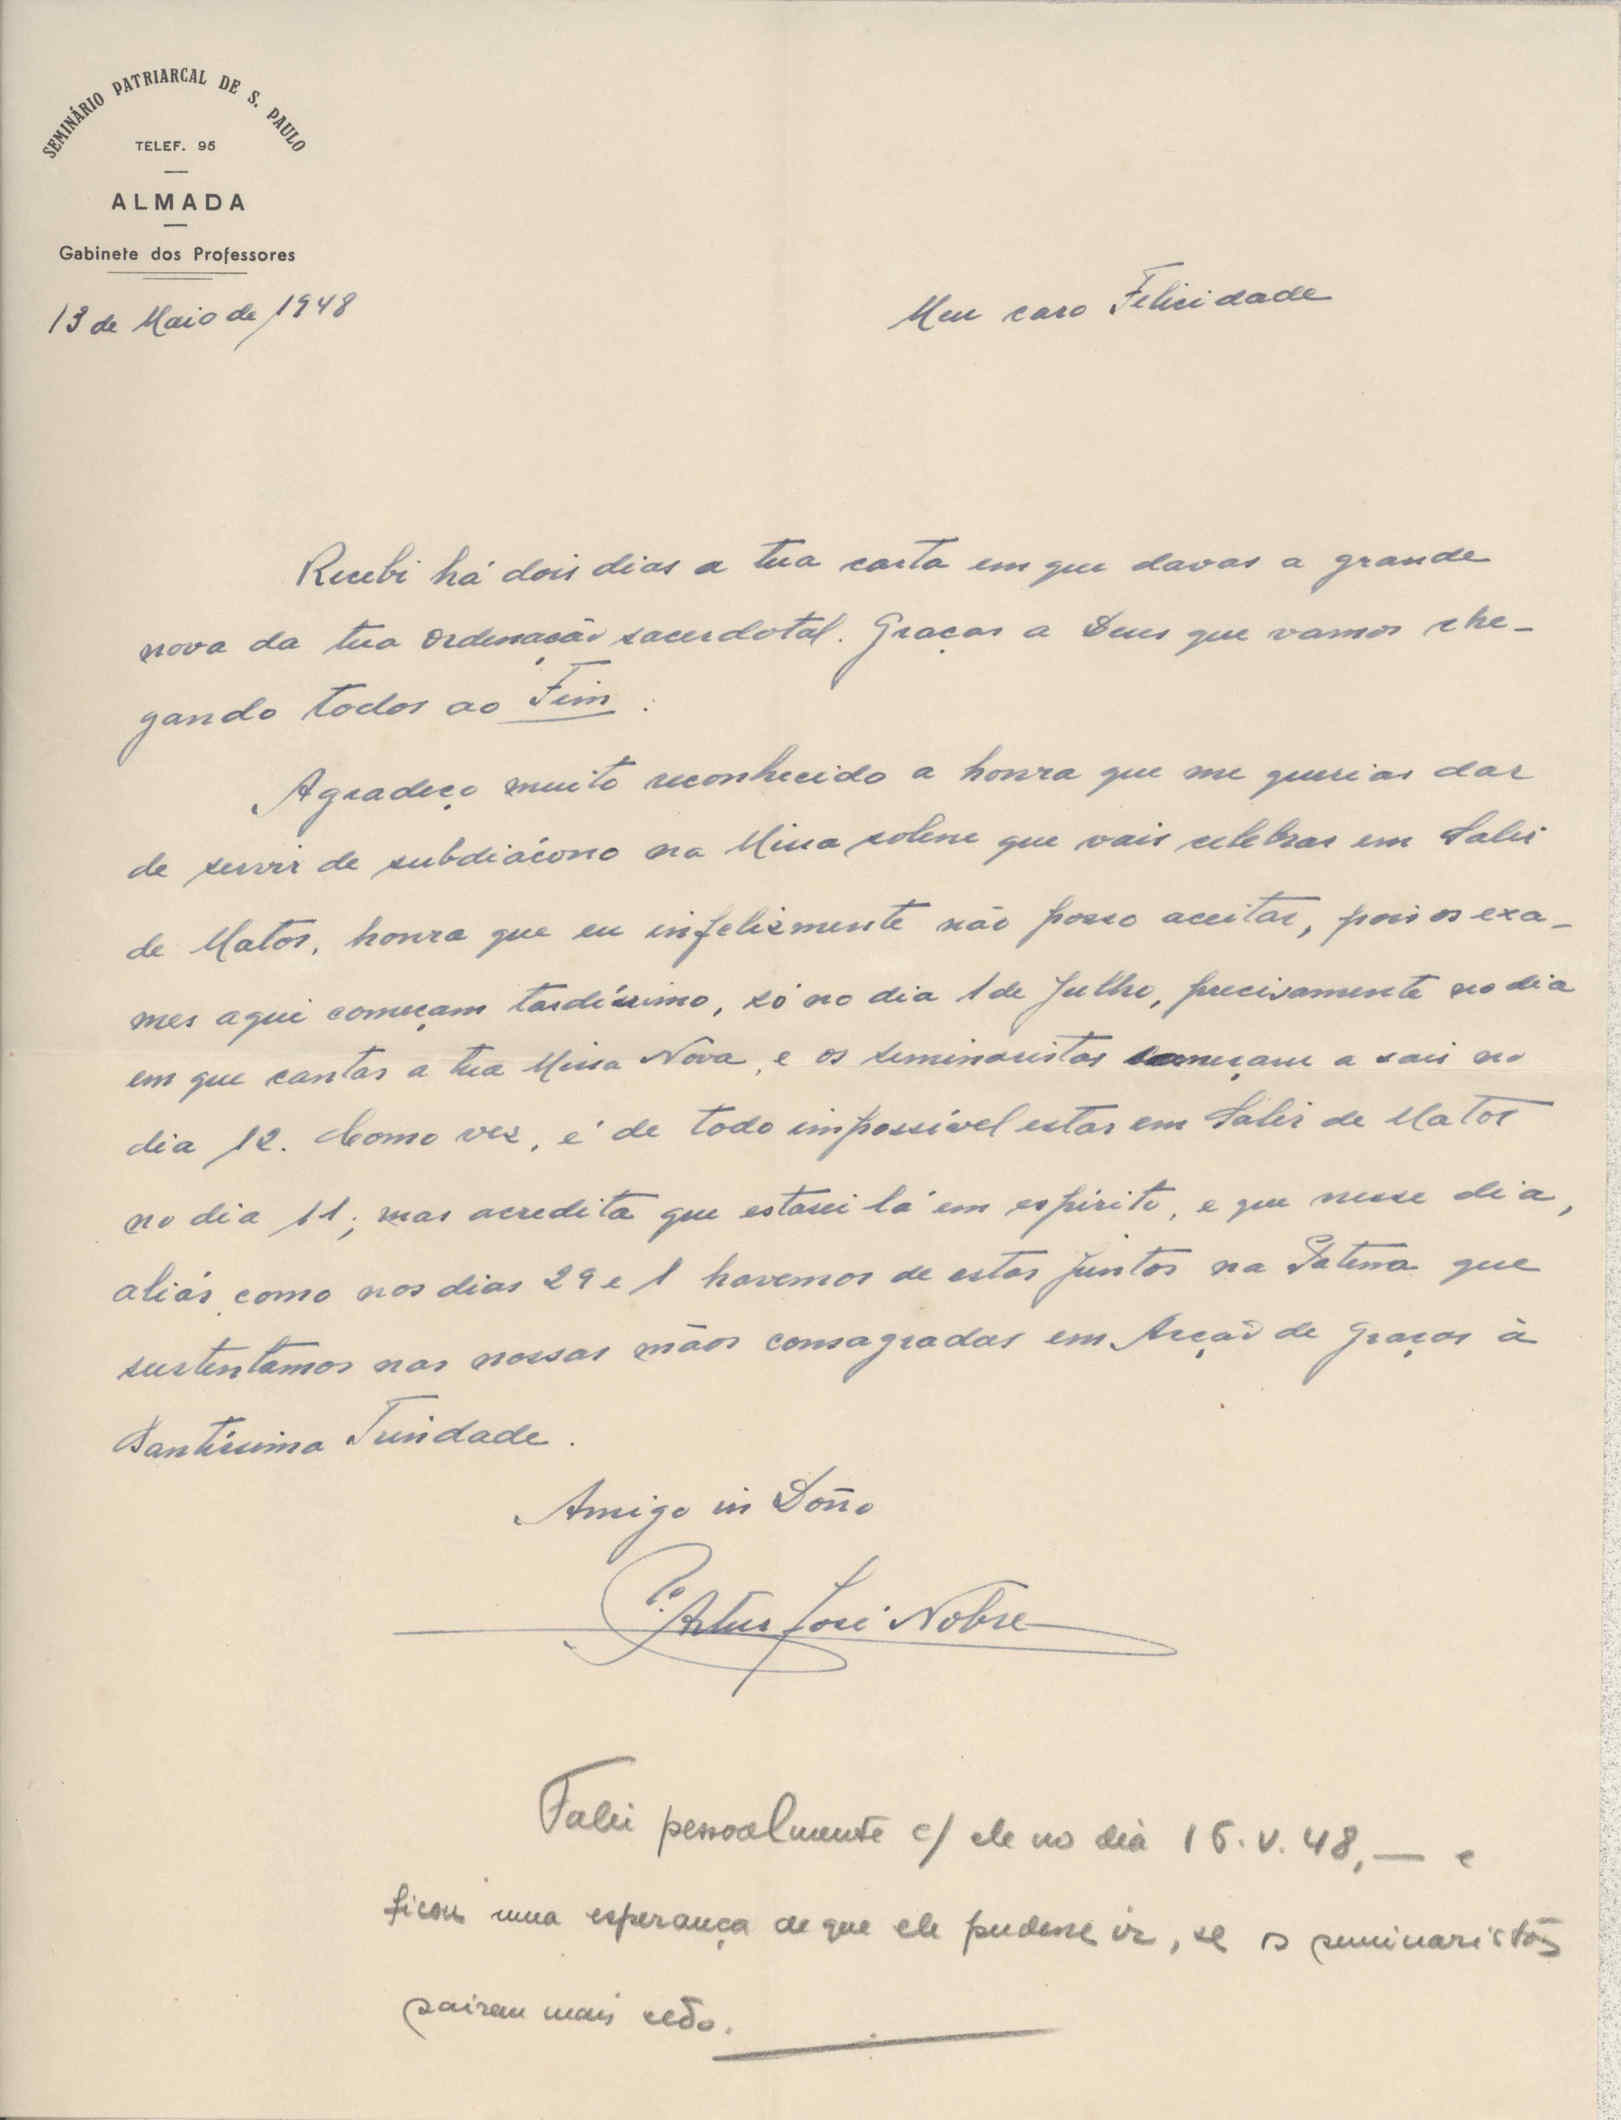 SEMINÁRIO PATRIARCAL DE S. PAULO
TELEF. 95
ALMADA
Gabinete dos Professores
13 de Maio de 1948
Meu caro Felicidade
Recebi há dois dias a tua carta em que davas a grande
nova da tua Ordenação sacerdotal. Graças a Deus que vamos che-
gando todos ao Fim.
Agradeço muito reconhecido a honra que me querias dar
de servir de subdiácono na Missa solene que vais celebrar em Salir
de Matos, honra que eu infelizmente não posso aceitar, pois os exa-
mes aqui começam tardíssimo, só no dia 1 de Julho, precisamente no dia
em que cantas a tua Missa Nova, e os seminaristas começam a sair no
dia 12. Como vez, é de todo impossível estar em Salir de Matos
no dia 11; mas acredita que estarei lá em espírito, e que nesse dia,
aliás como nos dias 29 e 1 havemos de estar juntos na Patena que
sustentamos nas nossas mãos consagradas em Acção de Graças à
Santíssima Trindade.
Amigo in Dōno
P.e Artur José Nobre
Falei pessoalmente c/ ele no dia 16.V.48, — e
ficou uma esperança de que ele pudesse ir, se os seminaristas
sairem mais cedo.